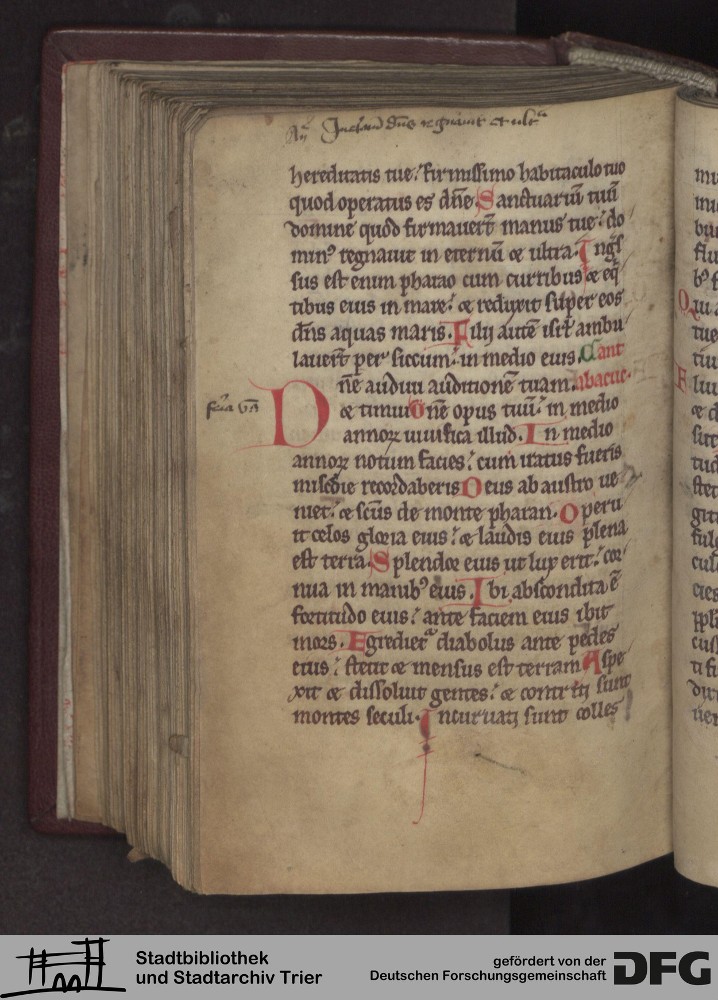 hereditatis tue. firmissimo habitaculo tuo
quod operatus es dñe. Sanctuariũ tuũ
domine quod firmauerũt manus tue. do
minꝰ regnauit in eternũ ⁊ ultra. Ingͥs
sus est enim pharao cum curribus ⁊ eq̃
tibus eius in mare. ⁊ reduxit super eos
dñs aquas maris. Filij autẽ isrł ambu
lauerũt per siccum. in medio eius. Cant
Dñe audiui auditionẽ tuam. abacuc.
feria vjͣ
⁊ timui Dñe opus tuũ. in medio
annoꝝ uiuifica illud. In medio
annoꝝ notum facies. cum iratus fueris
miscd̃ie recordaberis Deus ab austro ue
niet. ⁊ scũs de monte pharan. Operu
it celos gloria eius. ⁊ laudis eius plena
est terra. Splendor eius ut lux erit. cor
nua in manibꝰ eius. Ibi abscondita ẽ
fortitudo eius. ante faciem eius ibit
mors. Egredietᷣ diabolus ante pedes
eius. stetit ⁊ mensus est terram Aspe
xit ⁊ dissoluit gentes. ⁊ contriti sunt
montes seculi. Incuruati sunt colles
Stadtbibliothek
und Stadtarchiv Trier
gefördert von der
Deutschen Forschungsgemeinschaft
DFG